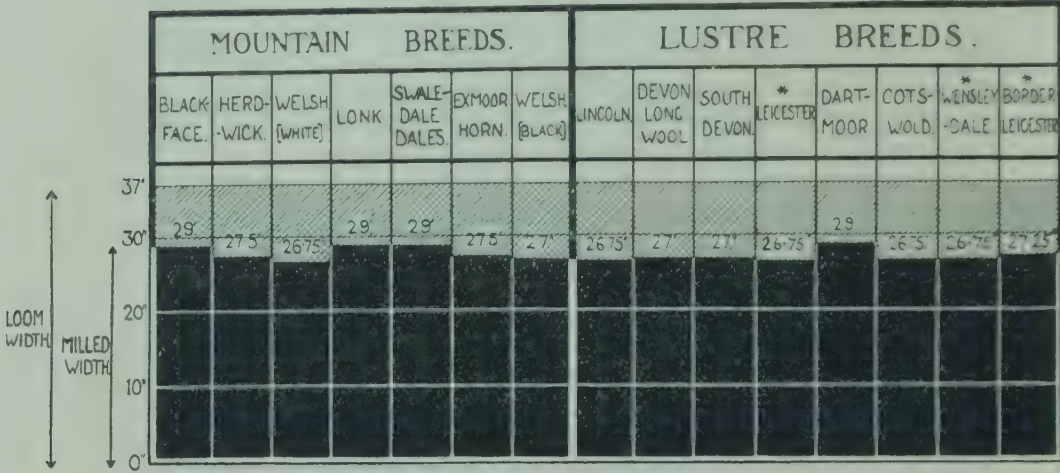 MOUNTAIN BREEDS.
LUSTRE BREEDS.
BLACK-
FACE.
HERD-
-WICK.
WELSH
[WHITE]
LONK
SWALE-
DALE
DALES.
EXMOOR
HORN.
WELSH
[BLACK]
LINCOLN.
DEVON
LONG
WOOL
SOUTH
DEVON.
*
LEICESTER
DART-
MOOR
COTS-
WOLD.
*
WENSLEY
-DALE
*
BORDER
LEICESTER
37"
30"
20"
10"
0"
29"
27·5"
26·75"
29"
29"
27·5"
27"
26·75"
27"
27"
26·75"
29
26·75"
27·25"
LOOM
WIDTH
MILLED
WIDTH